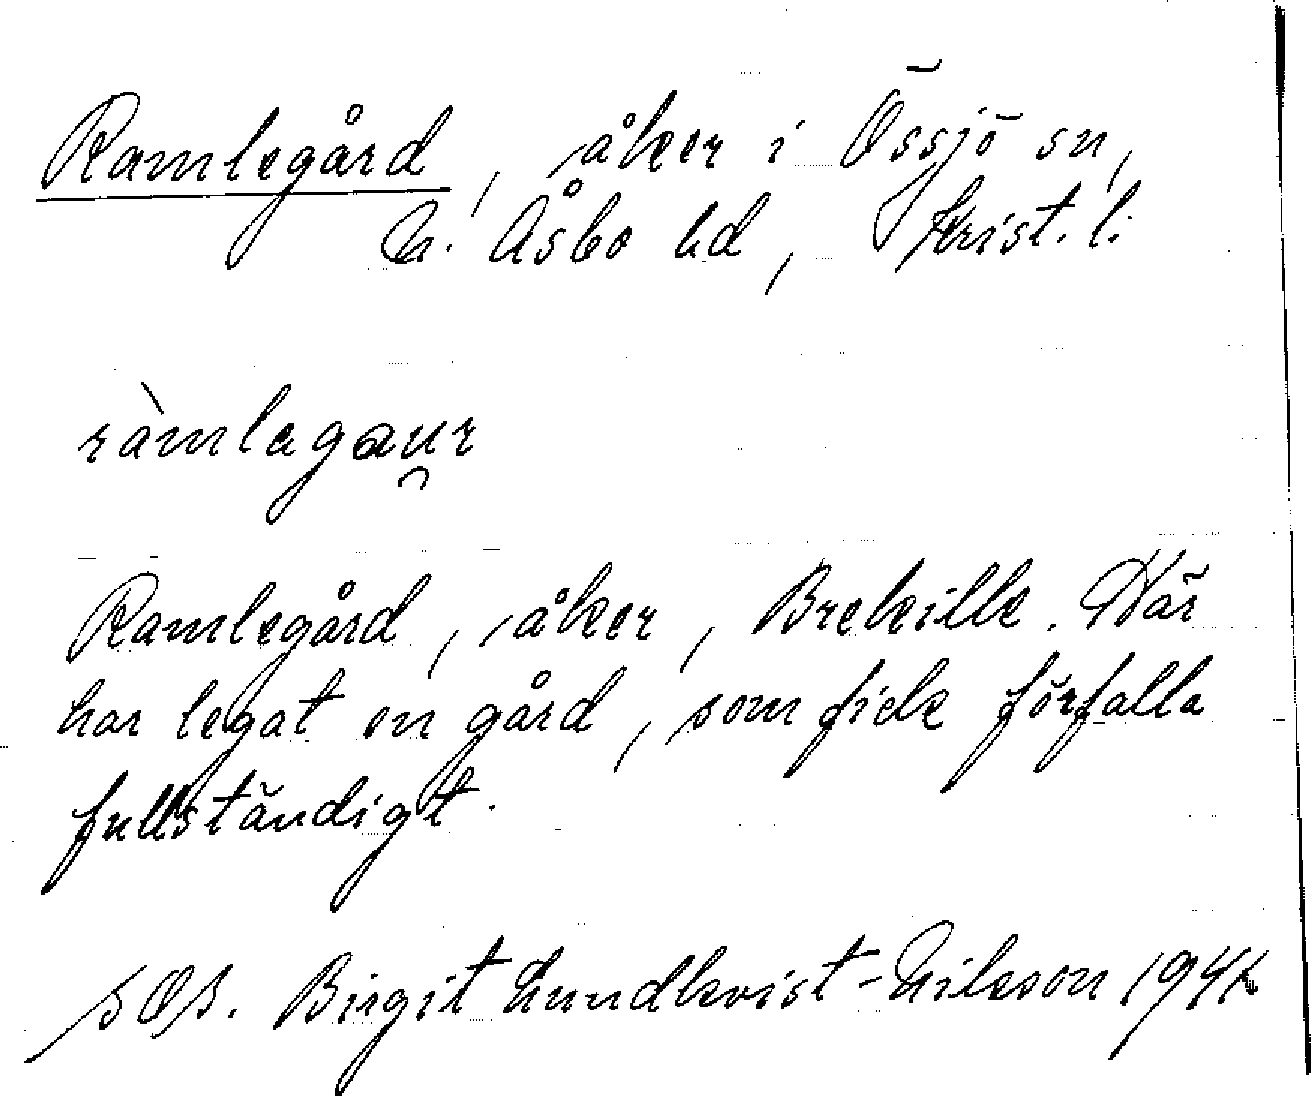 Ramlegård, åker i Össjö sn,
N. Åsbo hd, Krist. l.
ràmlagau̯r
Ramlegård, åker, Brekille. Här
har legat en gård, som fick förfalla
fullständigt.
Birgit Lundkvist-Nilsson